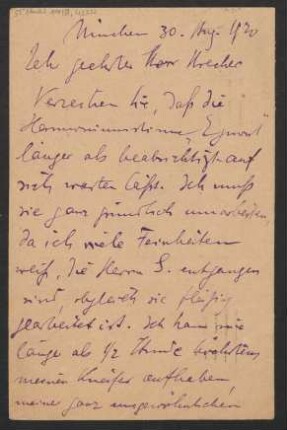 München 30. Aug. 1920
Sehr geehrter Herr Strecker
Verzeihen Sie, daß die
Harmoniumstimme „Egmont“
länger als beabsichtigt auf
sich warten läßt. Ich muß
sie ganz gründlich umarbeiten
da ich viele Feinheiten
weiß, die Herrn S. entgangen
sind, obgleich sie fleißig
gearbeitet ist. Ich kann nie
länge als 1/2 Stunde höchstens
meinen Kneifer aufhaben,
meine ganz ungewöhnlichen